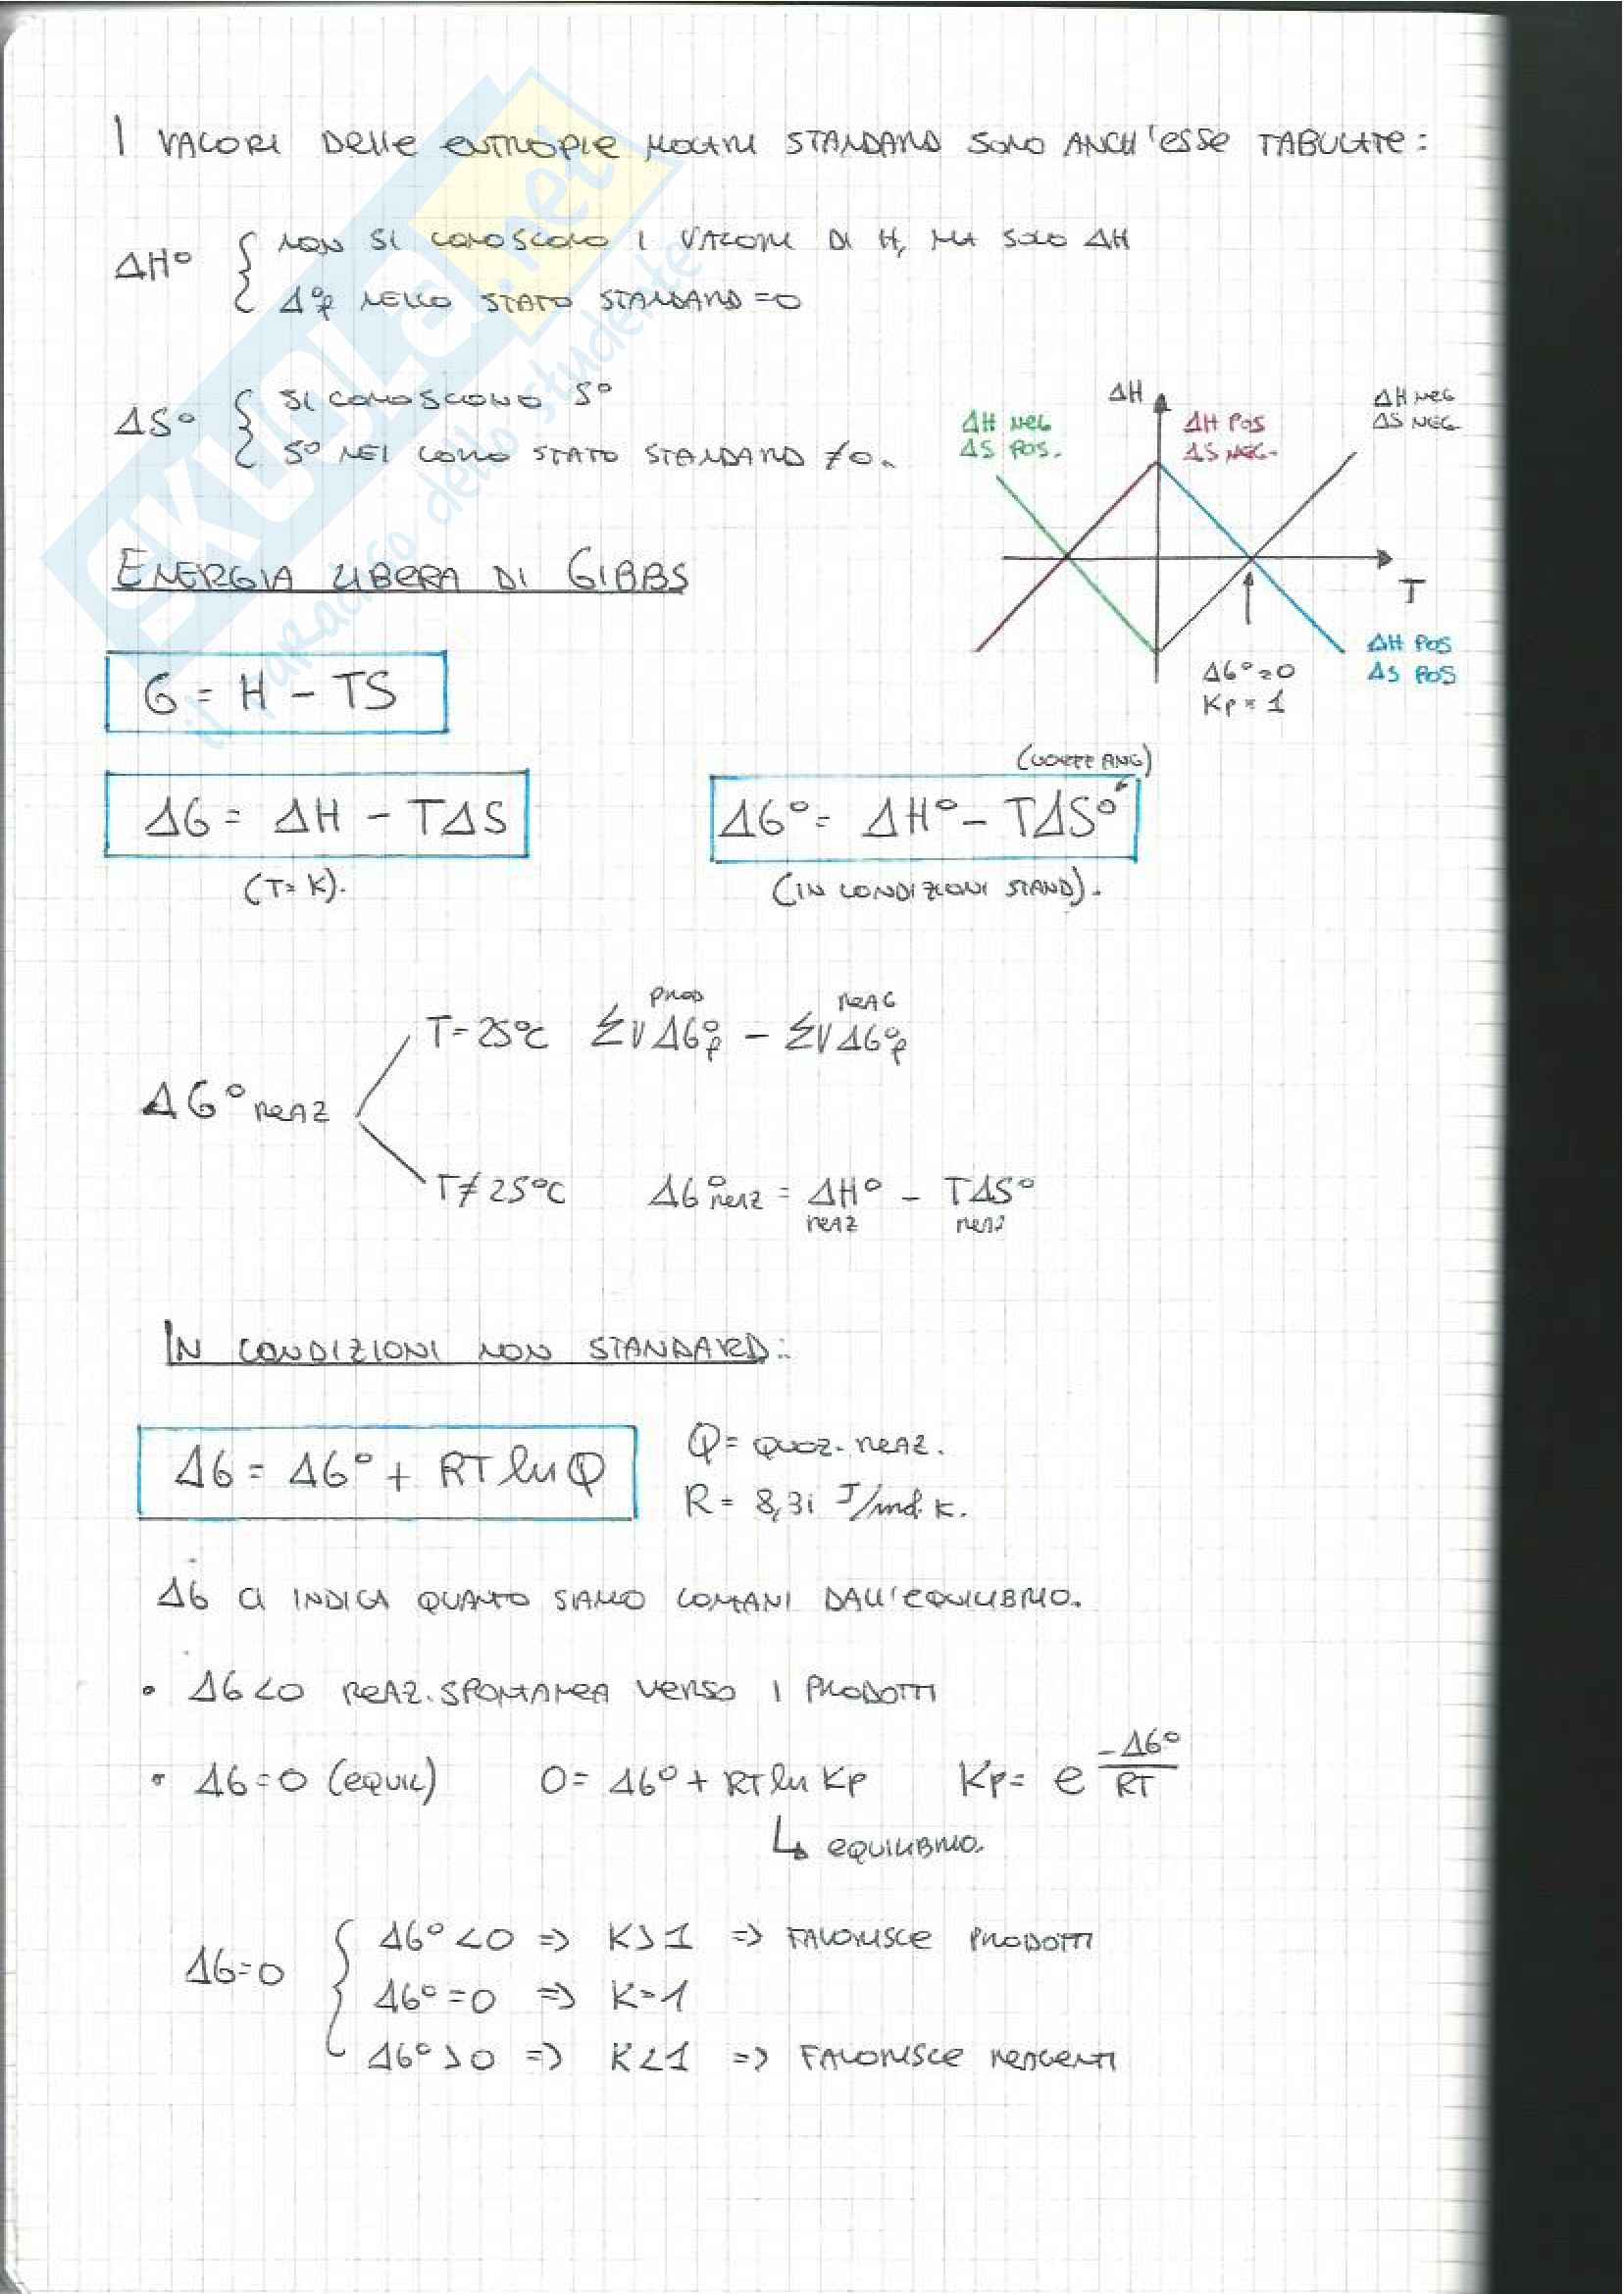 I VALORI DELLE ENTROPIE MOLARI STANDARD SONO ANCH'ESSE TABULATE:
ΔH° { NON SI CONOSCONO I VALORI DI H, MA SOLO ΔH
Δ°f NELLO STATO STANDARD =0
ΔS° { SI CONOSCONO S°
S° NEL LORO STATO STANDARD ≠0.
ΔH
ΔH NEG
ΔS POS.
ΔH POS
ΔS NEG.
ΔH NEG
ΔS NEG.
T
ΔH POS
ΔS POS
ΔG°=0
Kp=1
ENERGIA LIBERA DI GIBBS
G = H - TS
(COEFF ANG)
ΔG = ΔH - TΔS
ΔG° = ΔH° - TΔS°
(T= K).
(IN CONDIZIONI STAND).
ΔG° REAZ
T=25°C ΣνΔG°f PROD - ΣνΔG°f REAG
T≠25°C ΔG°REAZ = ΔH° REAZ - TΔS° REAZ
IN CONDIZIONI NON STANDARD:
ΔG = ΔG° + RT ln Q
Q= QUOZ. REAZ.
R = 8,31 J/mol K.
ΔG CI INDICA QUANTO SIAMO LONTANI DALL'EQUILIBRIO.
• ΔG<0 REAZ. SPONTANEA VERSO I PRODOTTI
• ΔG=0 (EQUIL) 0= ΔG°+ RT ln Kp Kp= e -ΔG°/RT
↳ EQUILIBRIO.
ΔG=0 { ΔG°<0 => K>1 => FAVORISCE PRODOTTI
ΔG°=0 => K=1
ΔG°>0 => K<1 => FAVORISCE REAGENTI
SKUOLA.net
il paradiso dello studente